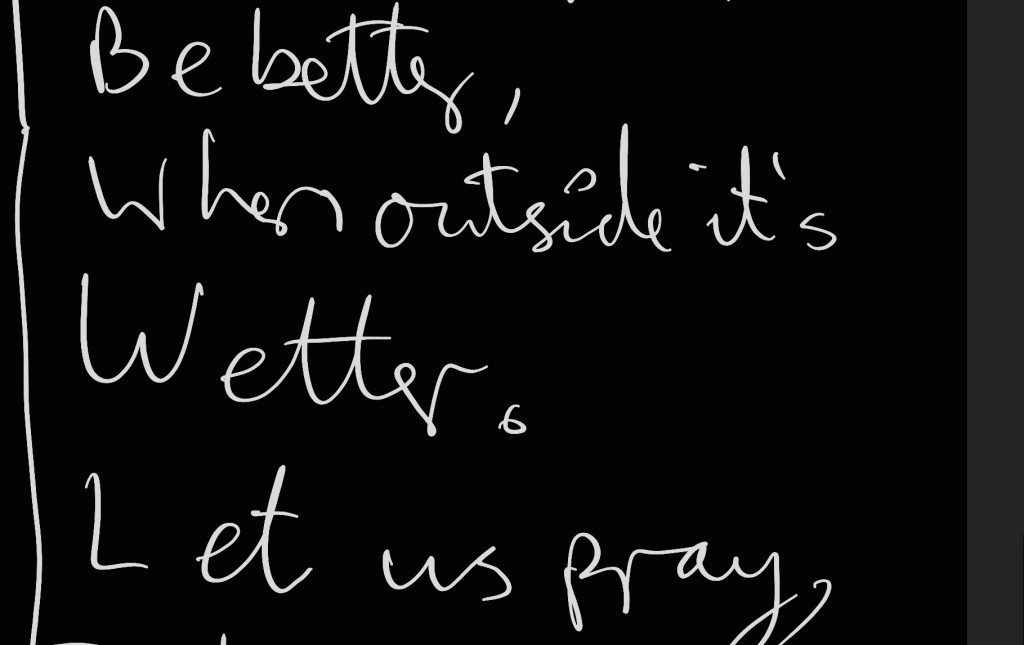 Be better,
When outside it's
Wetter.
Let us pray,